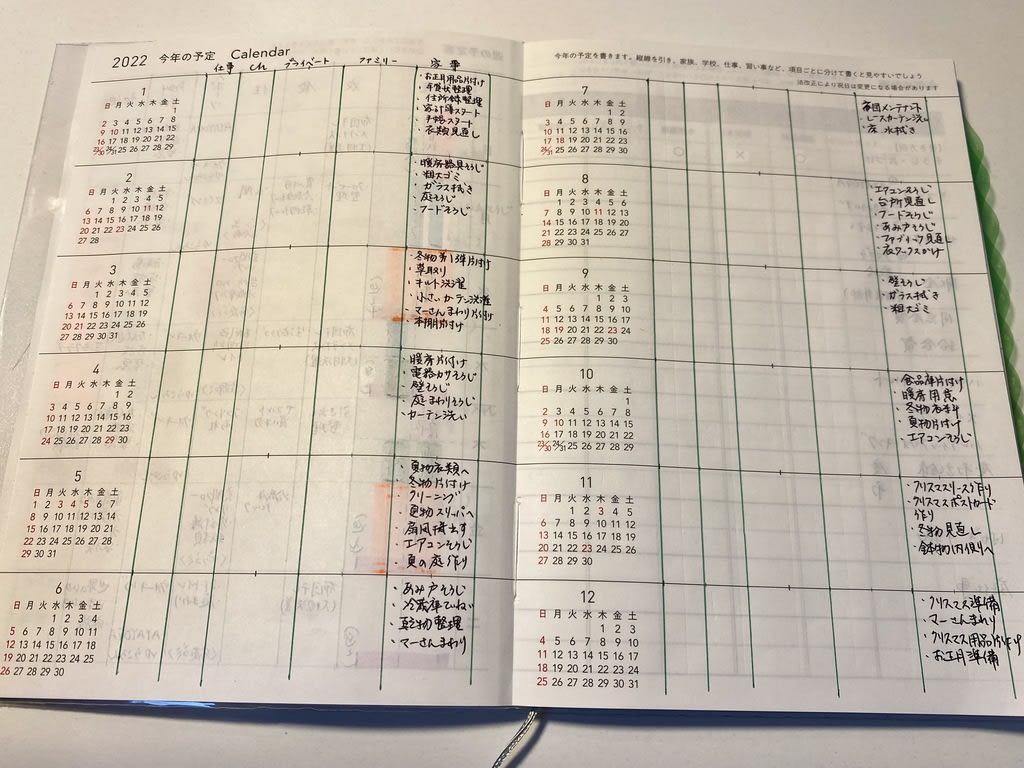 2022 今年の予定 Calendar
仕事 Ch プライベート ファミリー 家事
1
日 月 火 水 木 金 土
1
2 3 4 5 6 7 8
9 10 11 12 13 14 15
16 17 18 19 20 21 22
23/30 24/31 25 26 27 28 29
・お正月用品片付け
・年賀状整理
・住所録整理
・家計簿スタート
・手帳スタート
・衣類見直し
2
日 月 火 水 木 金 土
1 2 3 4 5
6 7 8 9 10 11 12
13 14 15 16 17 18 19
20 21 22 23 24 25 26
27 28
・暖房器具そうじ
・粗大ゴミ
・ガラス拭き
・庭そうじ
・フードそうじ
3
日 月 火 水 木 金 土
1 2 3 4 5
6 7 8 9 10 11 12
13 14 15 16 17 18 19
20 21 22 23 24 25 26
27 28 29 30 31
・冬物第1弾片付け
・草取り
・キルト洗濯
・小さいカーテン洗濯
・マーさんまわり片付け
・本棚片付け
4
日 月 火 水 木 金 土
1 2
3 4 5 6 7 8 9
10 11 12 13 14 15 16
17 18 19 20 21 22 23
24 25 26 27 28 29 30
・暖房片付け
・電器カサそうじ
・壁そうじ
・庭まわりそうじ
・カーテン洗い
5
日 月 火 水 木 金 土
1 2 3 4 5 6 7
8 9 10 11 12 13 14
15 16 17 18 19 20 21
22 23 24 25 26 27 28
29 30 31
・夏物衣類へ
・冬物片付け
・クリーニング
・夏物スリッパへ
・扇風機出す
・エアコンそうじ
・夏の庭作り
6
日 月 火 水 木 金 土
1 2 3 4
5 6 7 8 9 10 11
12 13 14 15 16 17 18
19 20 21 22 23 24 25
26 27 28 29 30
・あみ戸そうじ
・冷蔵庫ていねい
・乾物整理
・マーさんまわり
今年の予定を書きます。縦線を引き、家族、学校、仕事、習い事など、項目ごとに分けて書くと見やすいでしょう
法改正により祝日は変更になる場合があります
7
日 月 火 水 木 金 土
1 2
3 4 5 6 7 8 9
10 11 12 13 14 15 16
17 18 19 20 21 22 23
24/31 25 26 27 28 29 30
布団メンテナント
・レースカーテン洗い
・床水拭き
8
日 月 火 水 木 金 土
1 2 3 4 5 6
7 8 9 10 11 12 13
14 15 16 17 18 19 20
21 22 23 24 25 26 27
28 29 30 31
・エアコンそうじ
・台所見直し
・フードそうじ
・あみ戸そうじ
・ファブリック見直し
・床ワックスがけ
9
日 月 火 水 木 金 土
1 2 3
4 5 6 7 8 9 10
11 12 13 14 15 16 17
18 19 20 21 22 23 24
25 26 27 28 29 30
・壁そうじ
・ガラス拭き
・粗大ゴミ
10
日 月 火 水 木 金 土
1
2 3 4 5 6 7 8
9 10 11 12 13 14 15
16 17 18 19 20 21 22
23/30 24/31 25 26 27 28 29
・食品庫片付け
・暖房用意
・夏物片付け
・エアコンそうじ
11
日 月 火 水 木 金 土
1 2 3 4 5
6 7 8 9 10 11 12
13 14 15 16 17 18 19
20 21 22 23 24 25 26
27 28 29 30
・クリスマスリース作り
・クリスマスポストカード
作り
・冬物見直し
・鉢物内側へ
12
日 月 火 水 木 金 土
1 2 3
4 5 6 7 8 9 10
11 12 13 14 15 16 17
18 19 20 21 22 23 24
25 26 27 28 29 30 31
・クリスマス準備
・マーさんまわり
・クリスマス用品片付け
・お正月準備